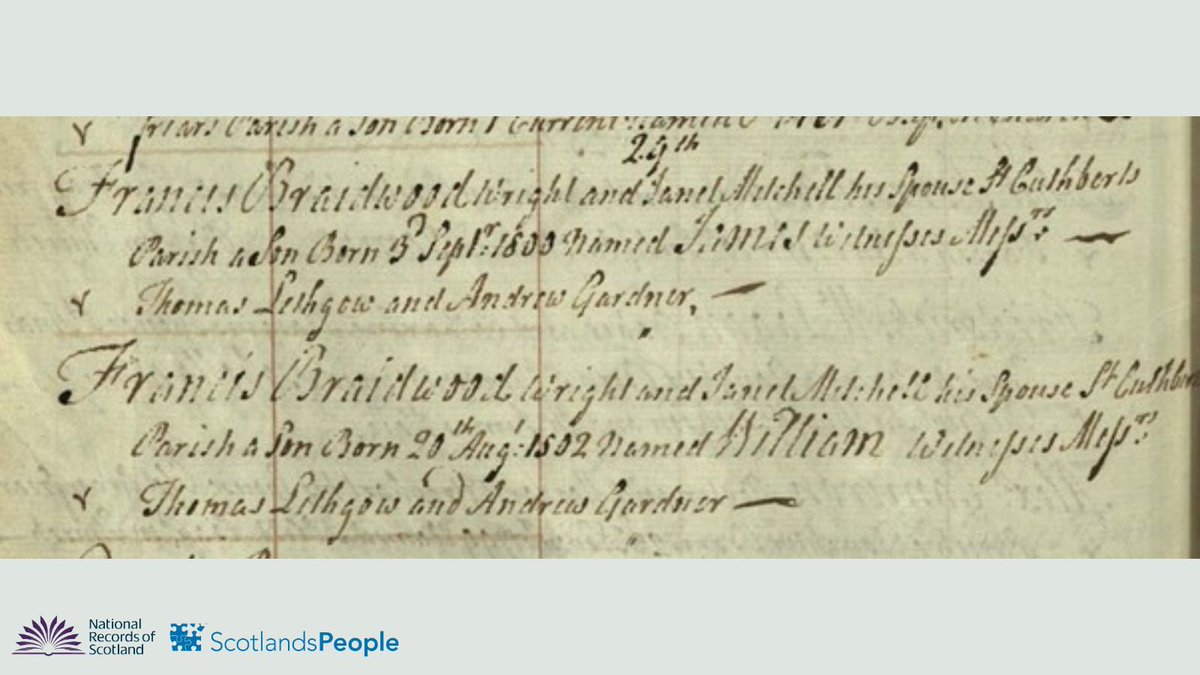 friars Parish a Son Born 1 Current Named
29th
Francis Braidwood Wright and Janet Mitchell his Spouse St Cuthberts
Parish a Son Born 3d Septr. 1800 Named James Witnesses Messrs.
Thomas Lethgow and Andrew Gardner,
Francis Braidwood Wright and Janet Mitchell his Spouse St Cuthberts
Parish a Son Born 20th Augt. 1802 Named William Witnesses Messrs.
Thomas Lethgow and Andrew Gardner
National
Records of
Scotland
ScotlandsPeople